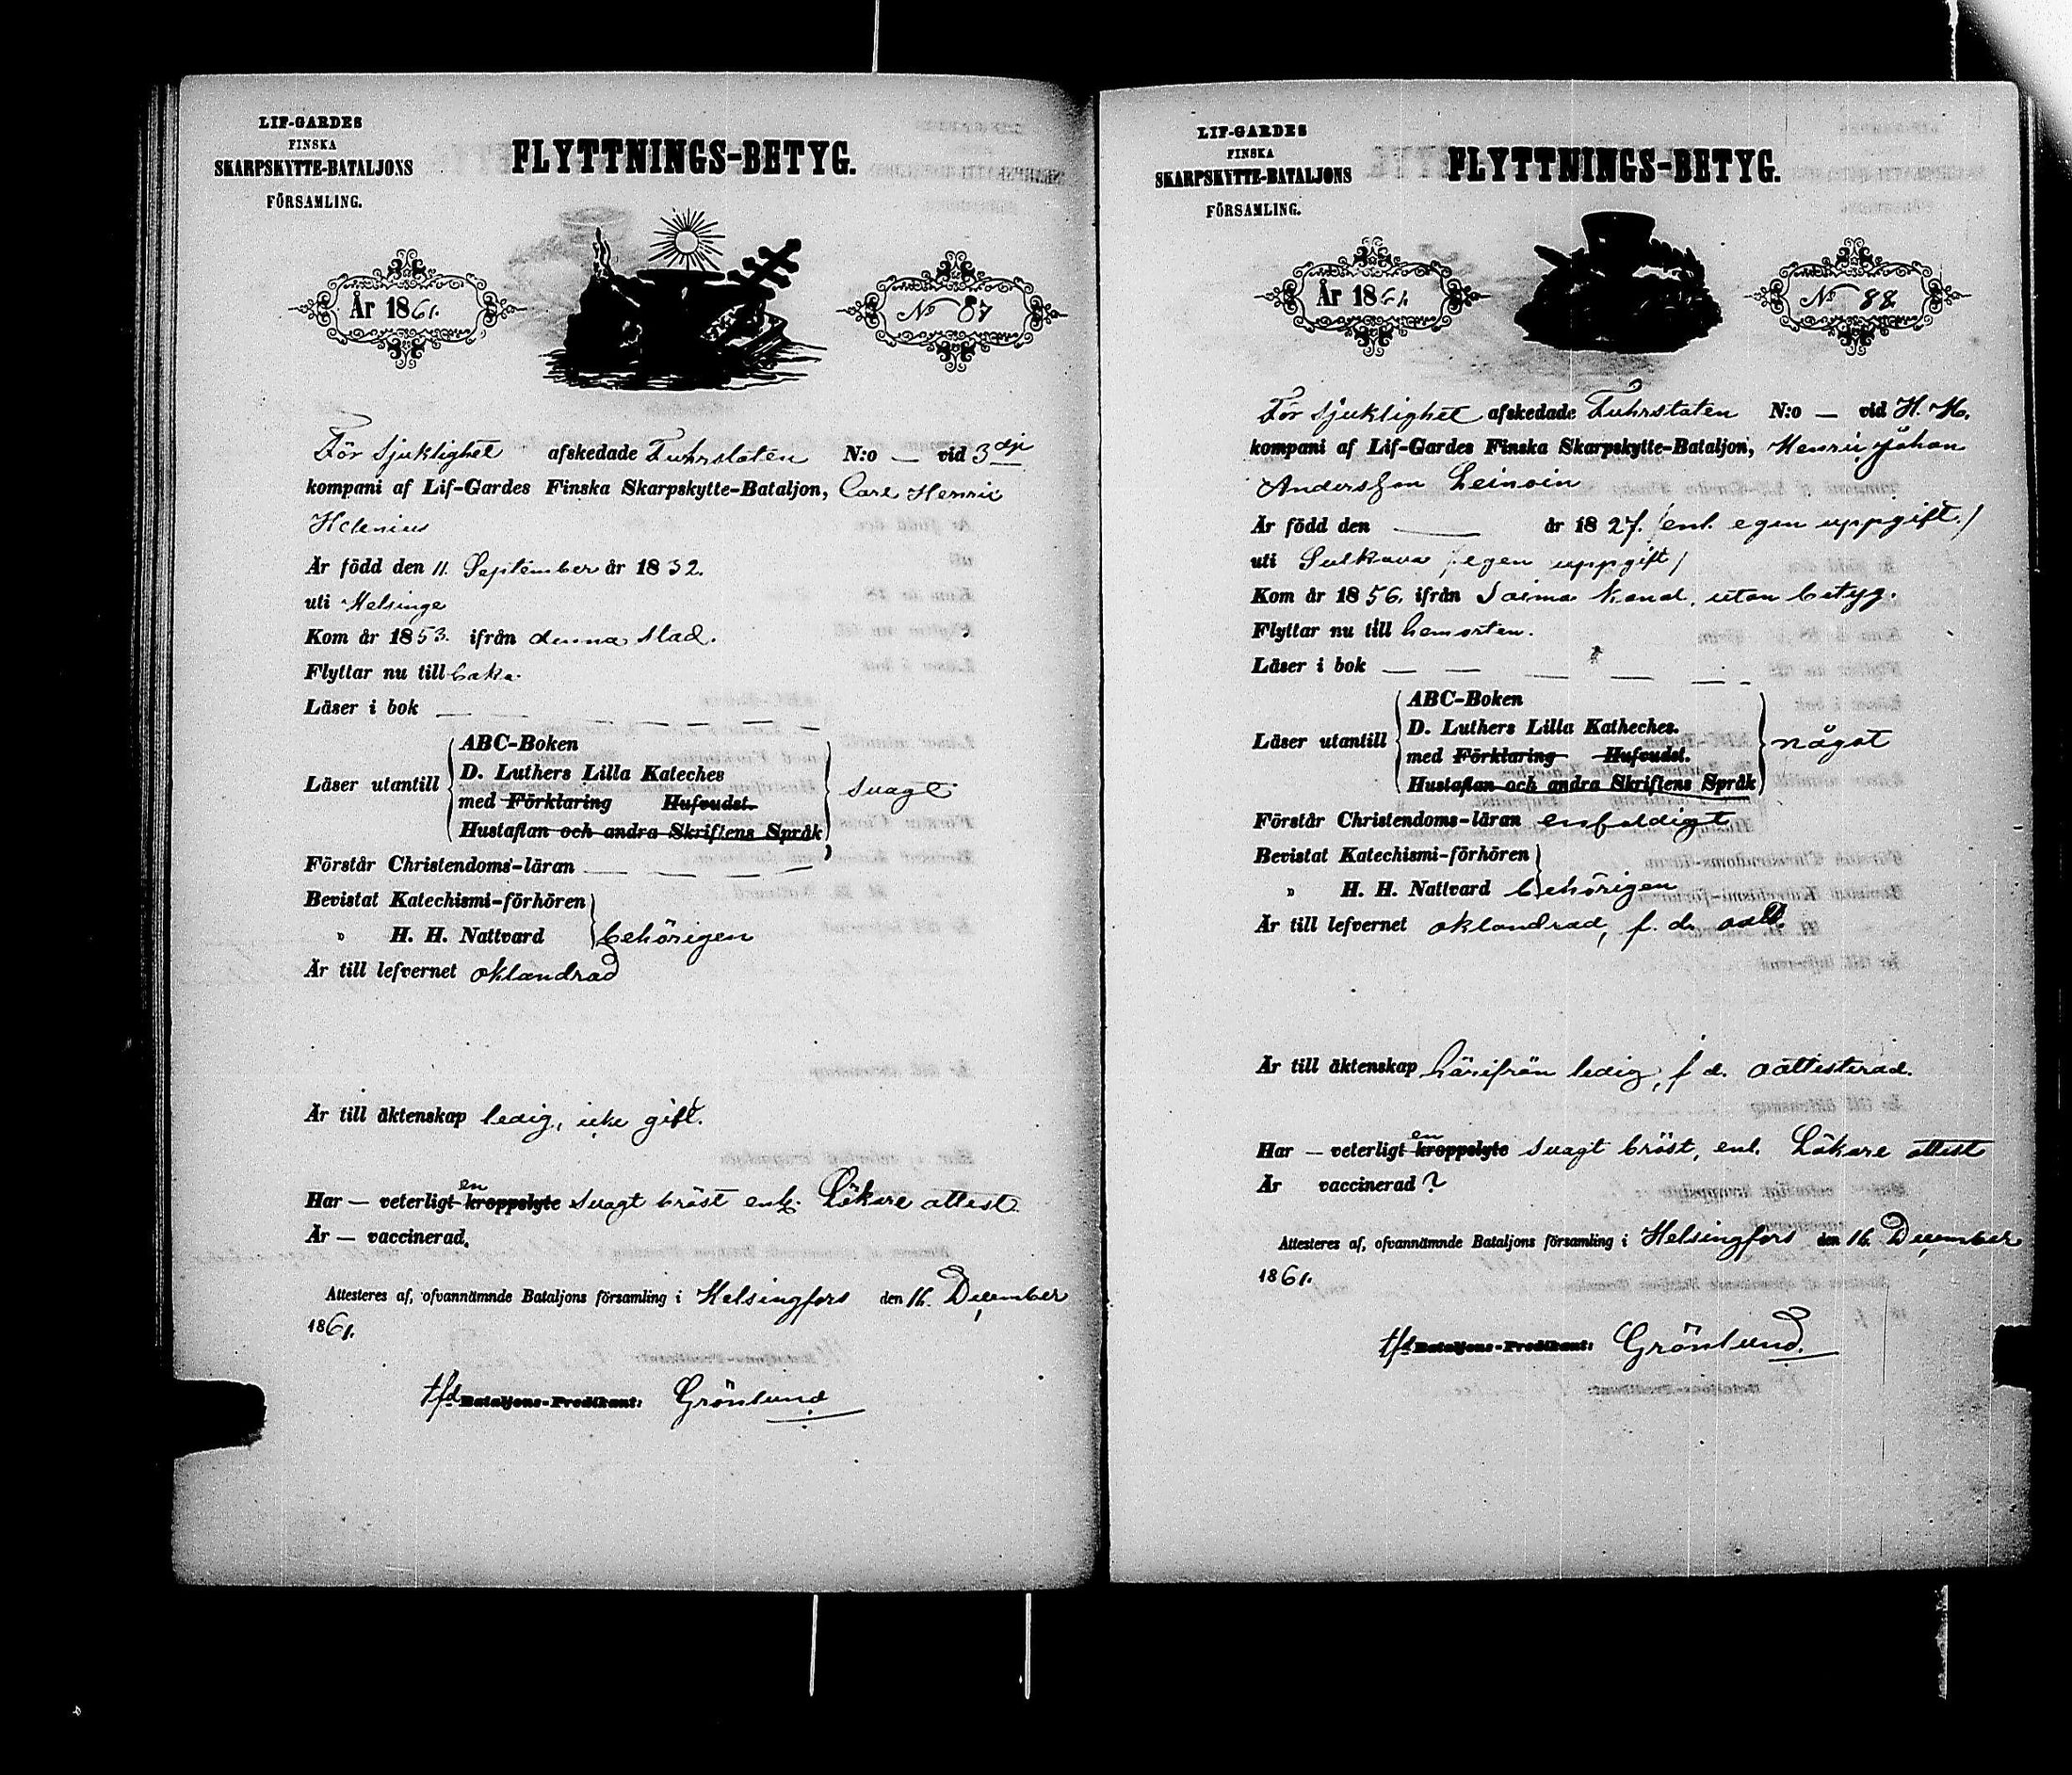 LIF-GARDES
FINSKA
SKARPSKYTTE-BATALJONS
FÖRSAMLING.
FLYTTNINGS-BETYG.
År 1861.
No 87
För sjuklighet afskedade Fuhrstaten N:o — vid 3dje
kompani af Lif-Gardes Finska Skarpskytte-Bataljon, Carl Henric
Helenius
Är född den 11. September år 1832.
uti Helsinge
Kom år 1853. ifrån denna stad.
Flyttar nu till baka.
Läser i bok — — — — — — —
Läser utantill
ABC-Boken
D. Luthers Lilla Kateches
med Förklaring Hufvudst.
Hustaflan och andra Skriftens Språk
svagt
Förstår Christendoms-läran — — — — —
Bevistat Katechismi-förhören
" H. H. Nattvard behörigen
Är till lefvernet oklandrad
Är till äktenskap ledig, icke gift.
Har — veterligt en kroppslyte svagt bröst enl. Läkare attest
Är — vaccinerad.
Attesteres af, ofvannämnde Bataljons församling i Helsingfors den 16. December
1861.
tfd Bataljons-Predikant: Grönlund
LIF-GARDES
FINSKA
SKARPSKYTTE-BATALJONS
FÖRSAMLING.
FLYTTNINGS-BETYG.
År 1861.
No 88
För sjuklighet afskedade Fuhrstaten N:o — vid H. M.
kompani af Lif-Gardes Finska Skarpskytte-Bataljon, Henric Johan
Andersson Leinoin
Är född den — år 1827. /enl. egen uppgift./
uti Sulkava /egen uppgift/
Kom år 1856. ifrån Saima kanal, utan betyg.
Flyttar nu till hemorten.
Läser i bok — — — — — —
Läser utantill
ABC-Boken
D. Luthers Lilla Katheches.
med Förklaring Hufvudst.
Hustaflan och andra Skriftens Språk
något
Förstår Christendoms-läran enfaldigt
Bevistat Katechismi-förhören
" H. H. Nattvard behörigen
Är till lefvernet oklandrad, f. d.
Är till äktenskap härifrån ledig, f. d. oattesterad.
Har — veterligt en kroppslyte svagt bröst, enl. Läkare attest
Är vaccinerad?
Attesteres af, ofvannämnde Bataljons församling i Helsingfors den 16. December
1861.
tfd Bataljons-Predikant: Grönlund.